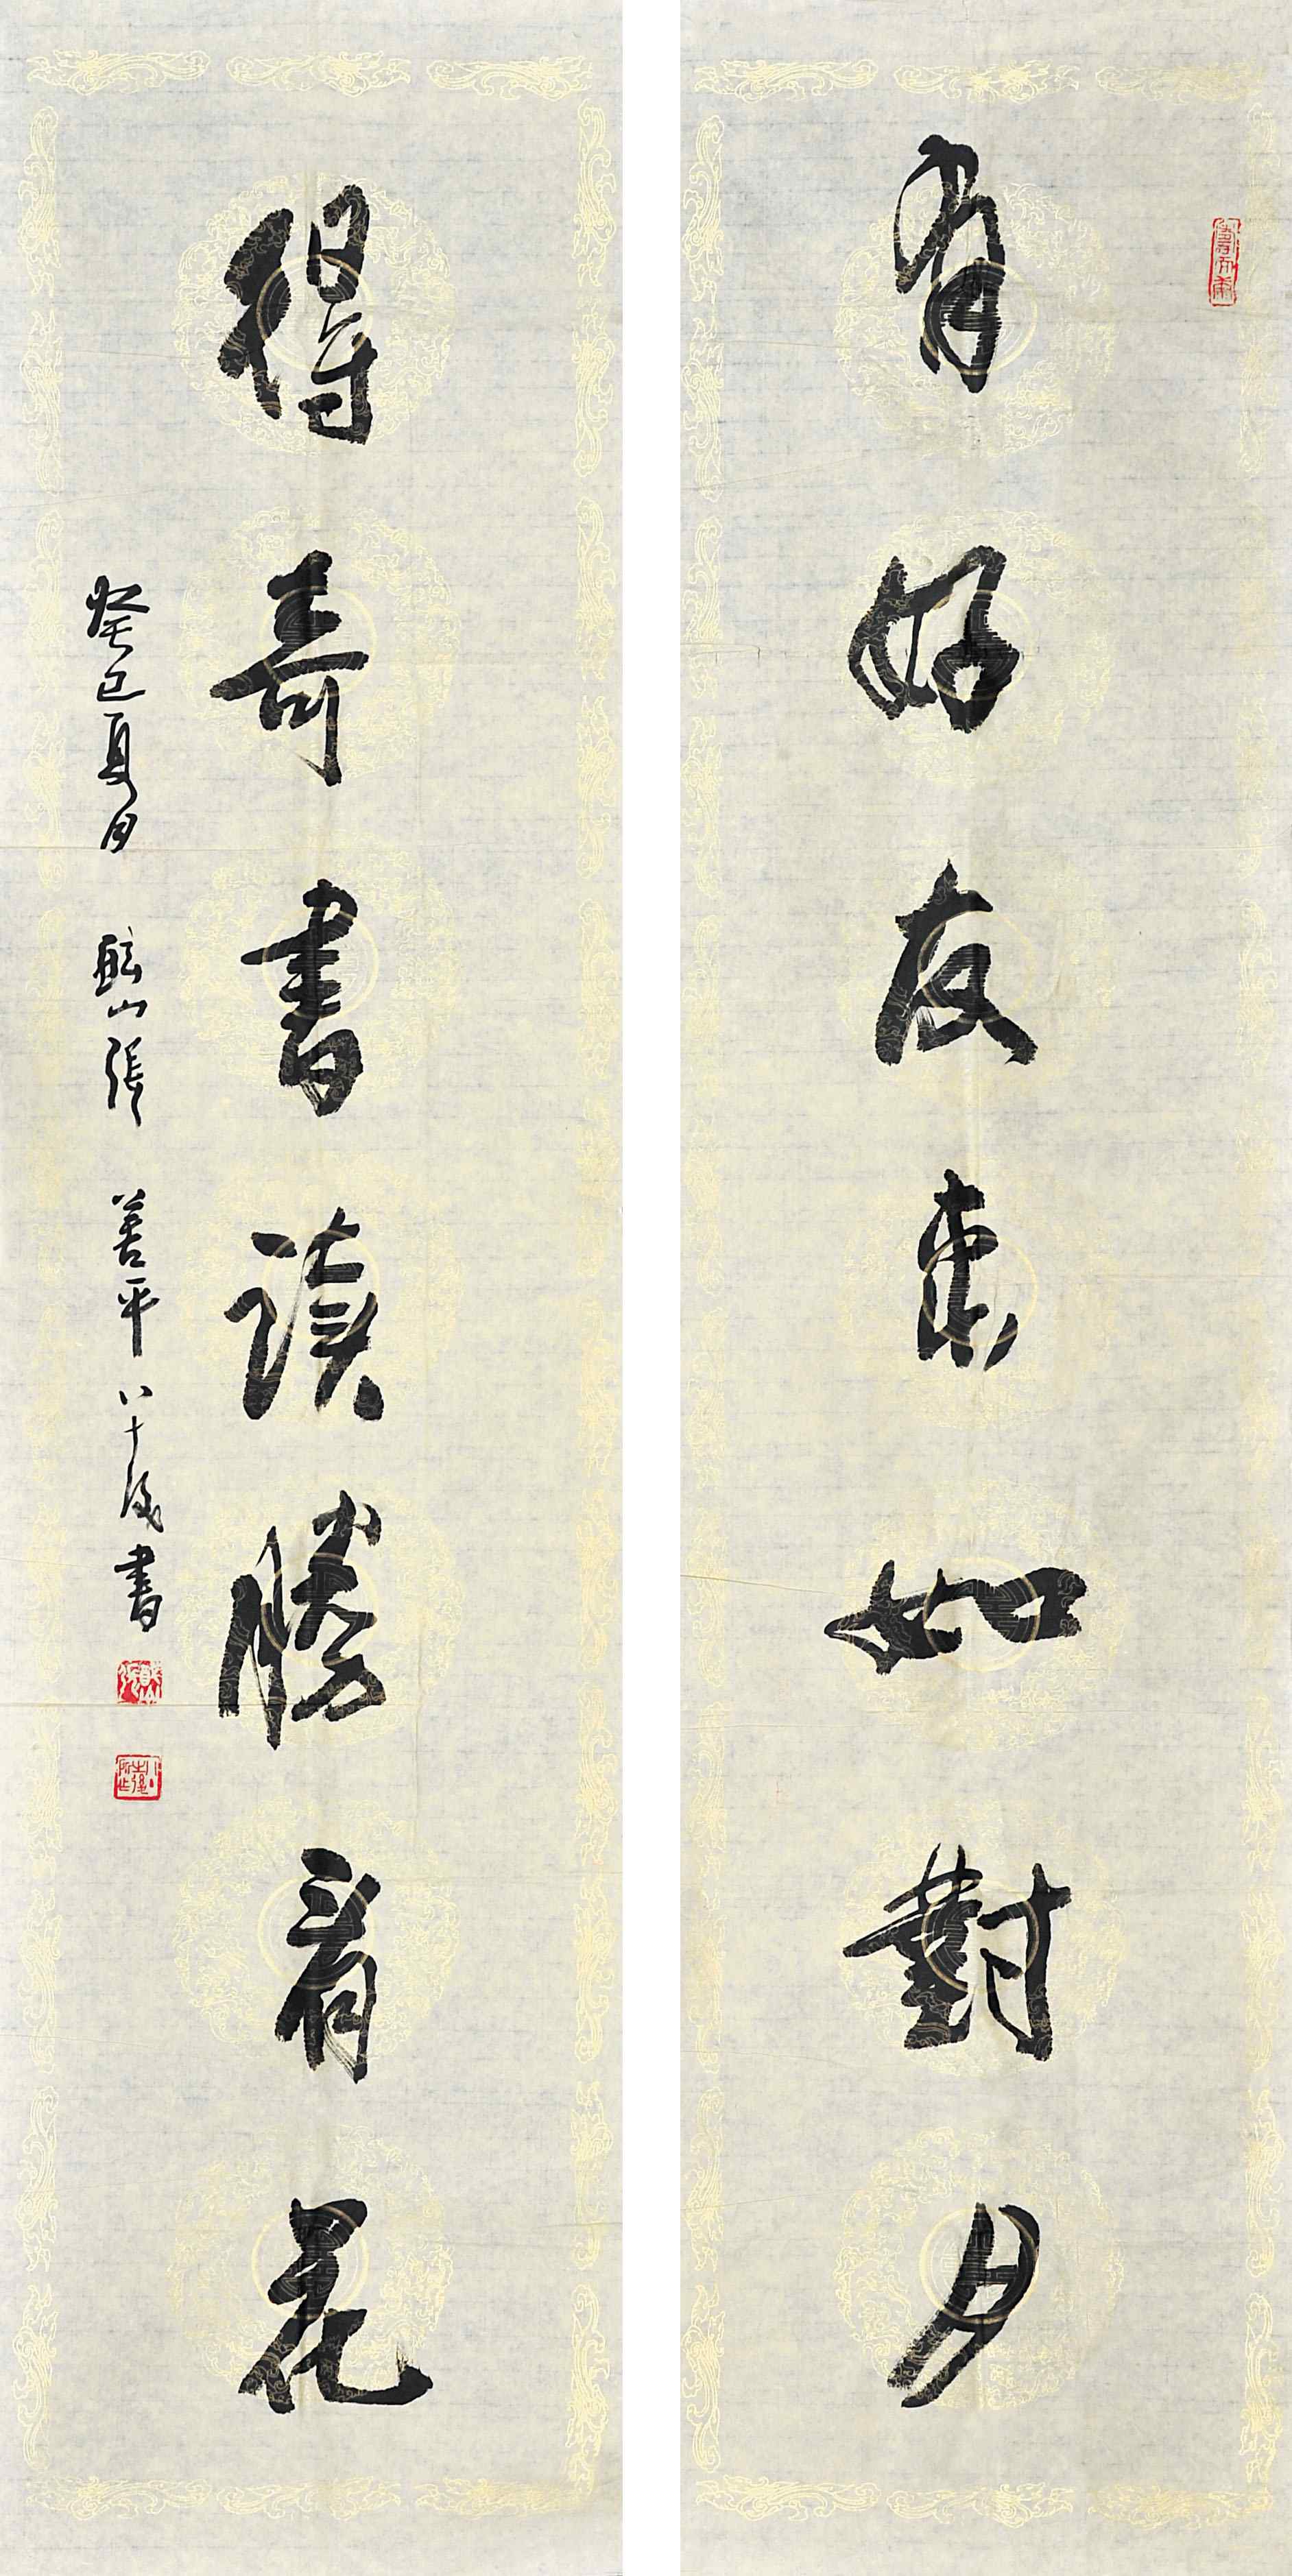 有好友來如對月
得奇書讀勝看花
癸巳夏月 山張善平八十後書